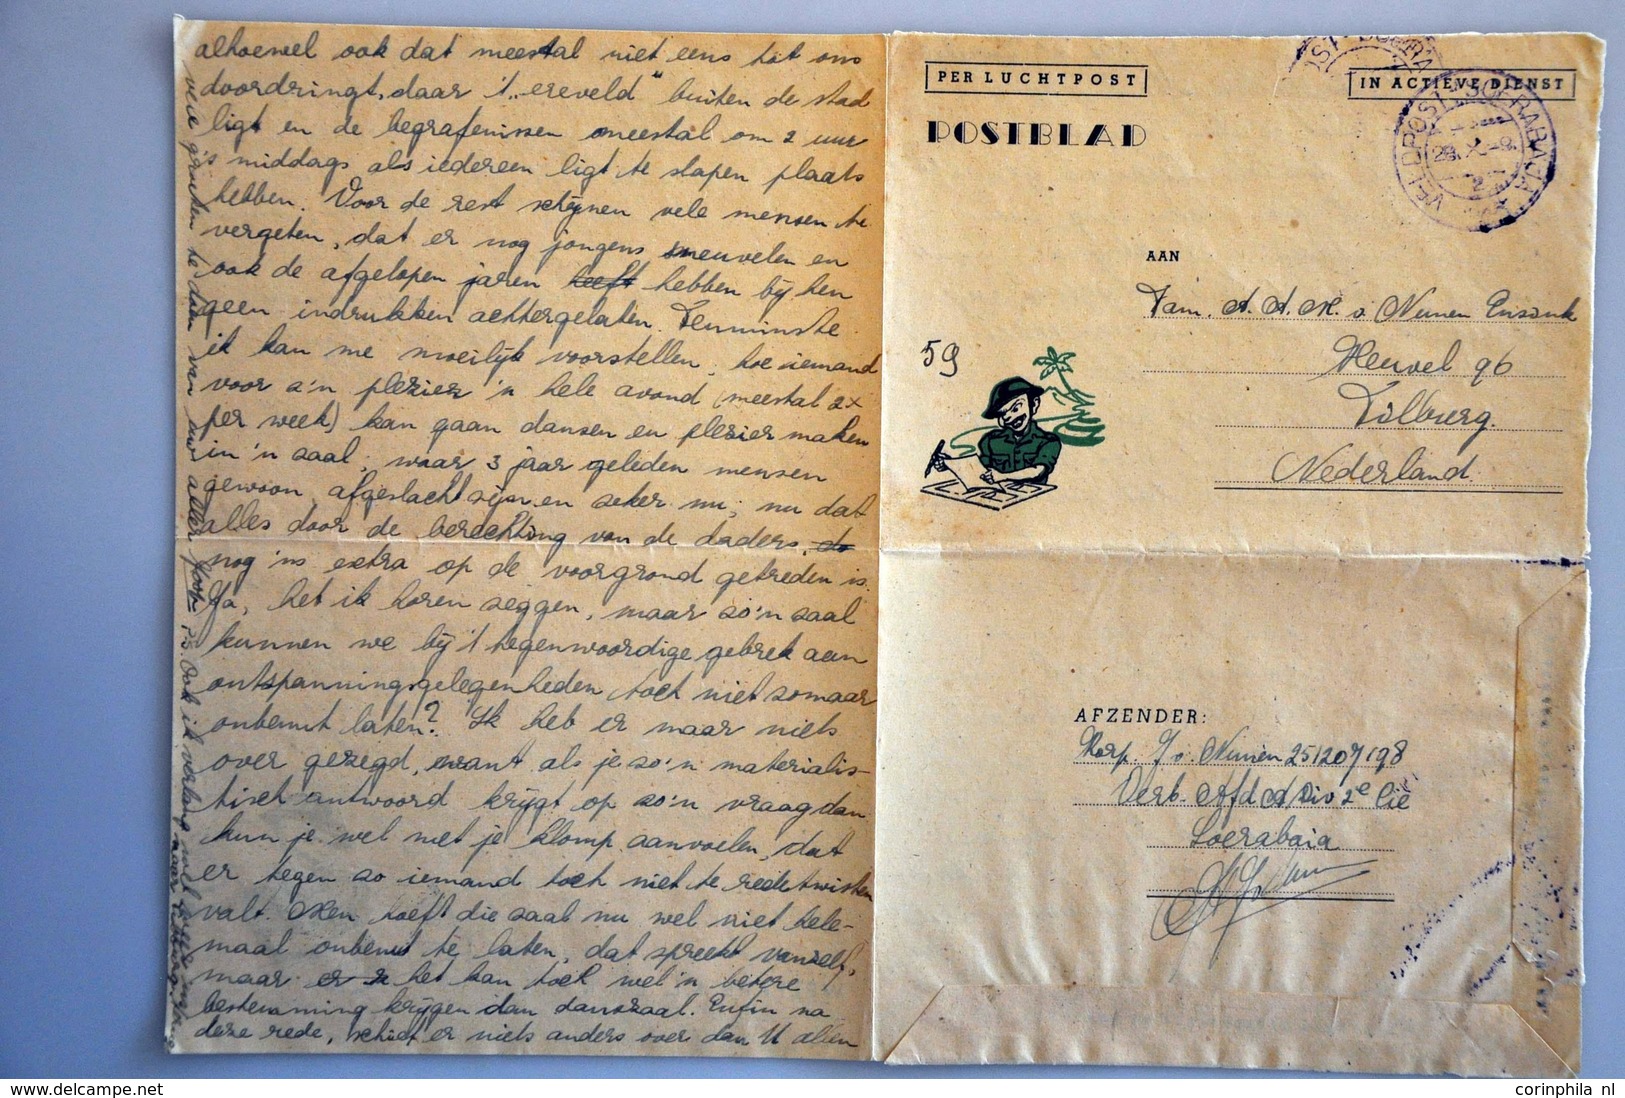 alhoewel ook dat meestal niet eens tot ons
doordringt, daar 't „ereveld" buiten de stad
ligt en de begrafenissen meestal om 2 uur
's middags als iedereen ligt te slapen plaats
hebben. Voor de rest schijnen vele mensen te
vergeten, dat er nog jongens sneuvelen en
ook de afgelopen jaren heeft hebben bij hen
geen indrukken achtergelaten. Tenminste
ik kan me moeilijk voorstellen, hoe iemand
voor z'n plezier 'n hele avond (meestal 2x
per week) kan gaan dansen en plezier maken
in 'n zaal, waar 3 jaar geleden mensen
gewoon afgeslacht zijn en zeker nu, nu dat
alles door de berechting van de daders, do
nog 'ns extra op de voorgrond getreden is.
Ja, het ik horen zeggen, maar zo'n zaal
kunnen we bij 't tegenwoordige gebrek aan
ontspanningsgelegenheden toch niet zomaar
onbenut laten? Ik heb er maar niets
over gezegd, want als je zo'n materialis-
tisch antwoord krijgt op zo'n vraag dan
kun je wel met je klomp aanvoelen, dat
er tegen zo iemand toch niet te redetwisten
valt. Men hoeft die zaal nu wel niet hele-
maal onbenut te laten, dat spreekt vanzelf,
maar er z het kan toch wel 'n betere
bestemming krijgen dan danszaal. Enfin na
deze rede, schiet er niets anders over dan U allen
vele groeten te doen van uw aller Joop
P.S. Ook ik verlang naar Tilburg.
PER LUCHTPOST
IN ACTIEVE DIENST
POSTBLAD
VELDPOST SOERABAJA
AAN
Fam. A. A. M. v. Nunen Ensinck
Heuvel 96
Tilburg.
Nederland.
59
AFZENDER:
Korp. J v. Nunen 251207198
Verb. Afd A Div 2e Cie
Soerabaia
corinphila nl